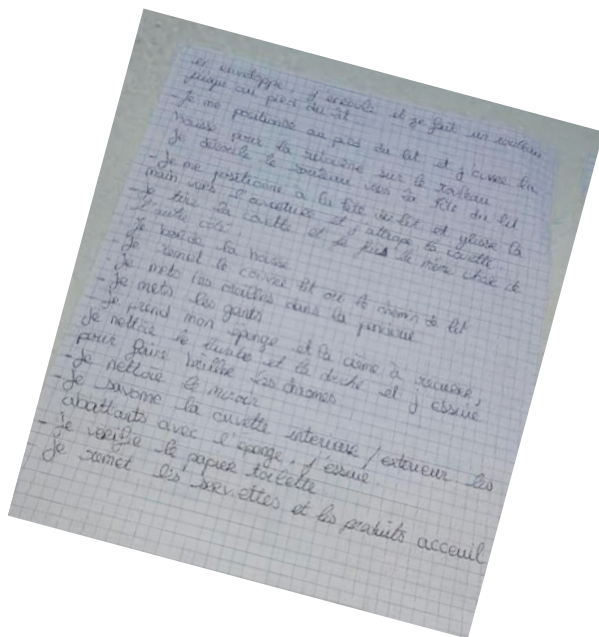 en enveloppe, j'enroule et je fait un rouleau
jusqu'au pied du lit
- Je me positionne au pied du lit et j'ouvre la
housse pour la sur le rouleau
Je déroule le rouleau vers la tête du lit
- Je me positionne à la tête du lit et glisse la
main vers l'ouverture et j'attrape la couette
- Je tire la couette et je fais la même chose de
l'autre côté
Je borde la housse
- Je remet le couvre lit ou le chemin de lit
Je mets les oreillers dans la
- Je mets les gants
- Je prend mon éponge et la crème à recurer,
Je nettoie le lavabo et la douche et j'essuie
pour faire briller les chromes
- Je nettoie le miroir
- Je savonne la cuvette interieur / exterieur les
abattants avec l'éponge, j'essuie
- Je verifie le papier toilette
- Je remet les serviettes et les produits acceuil